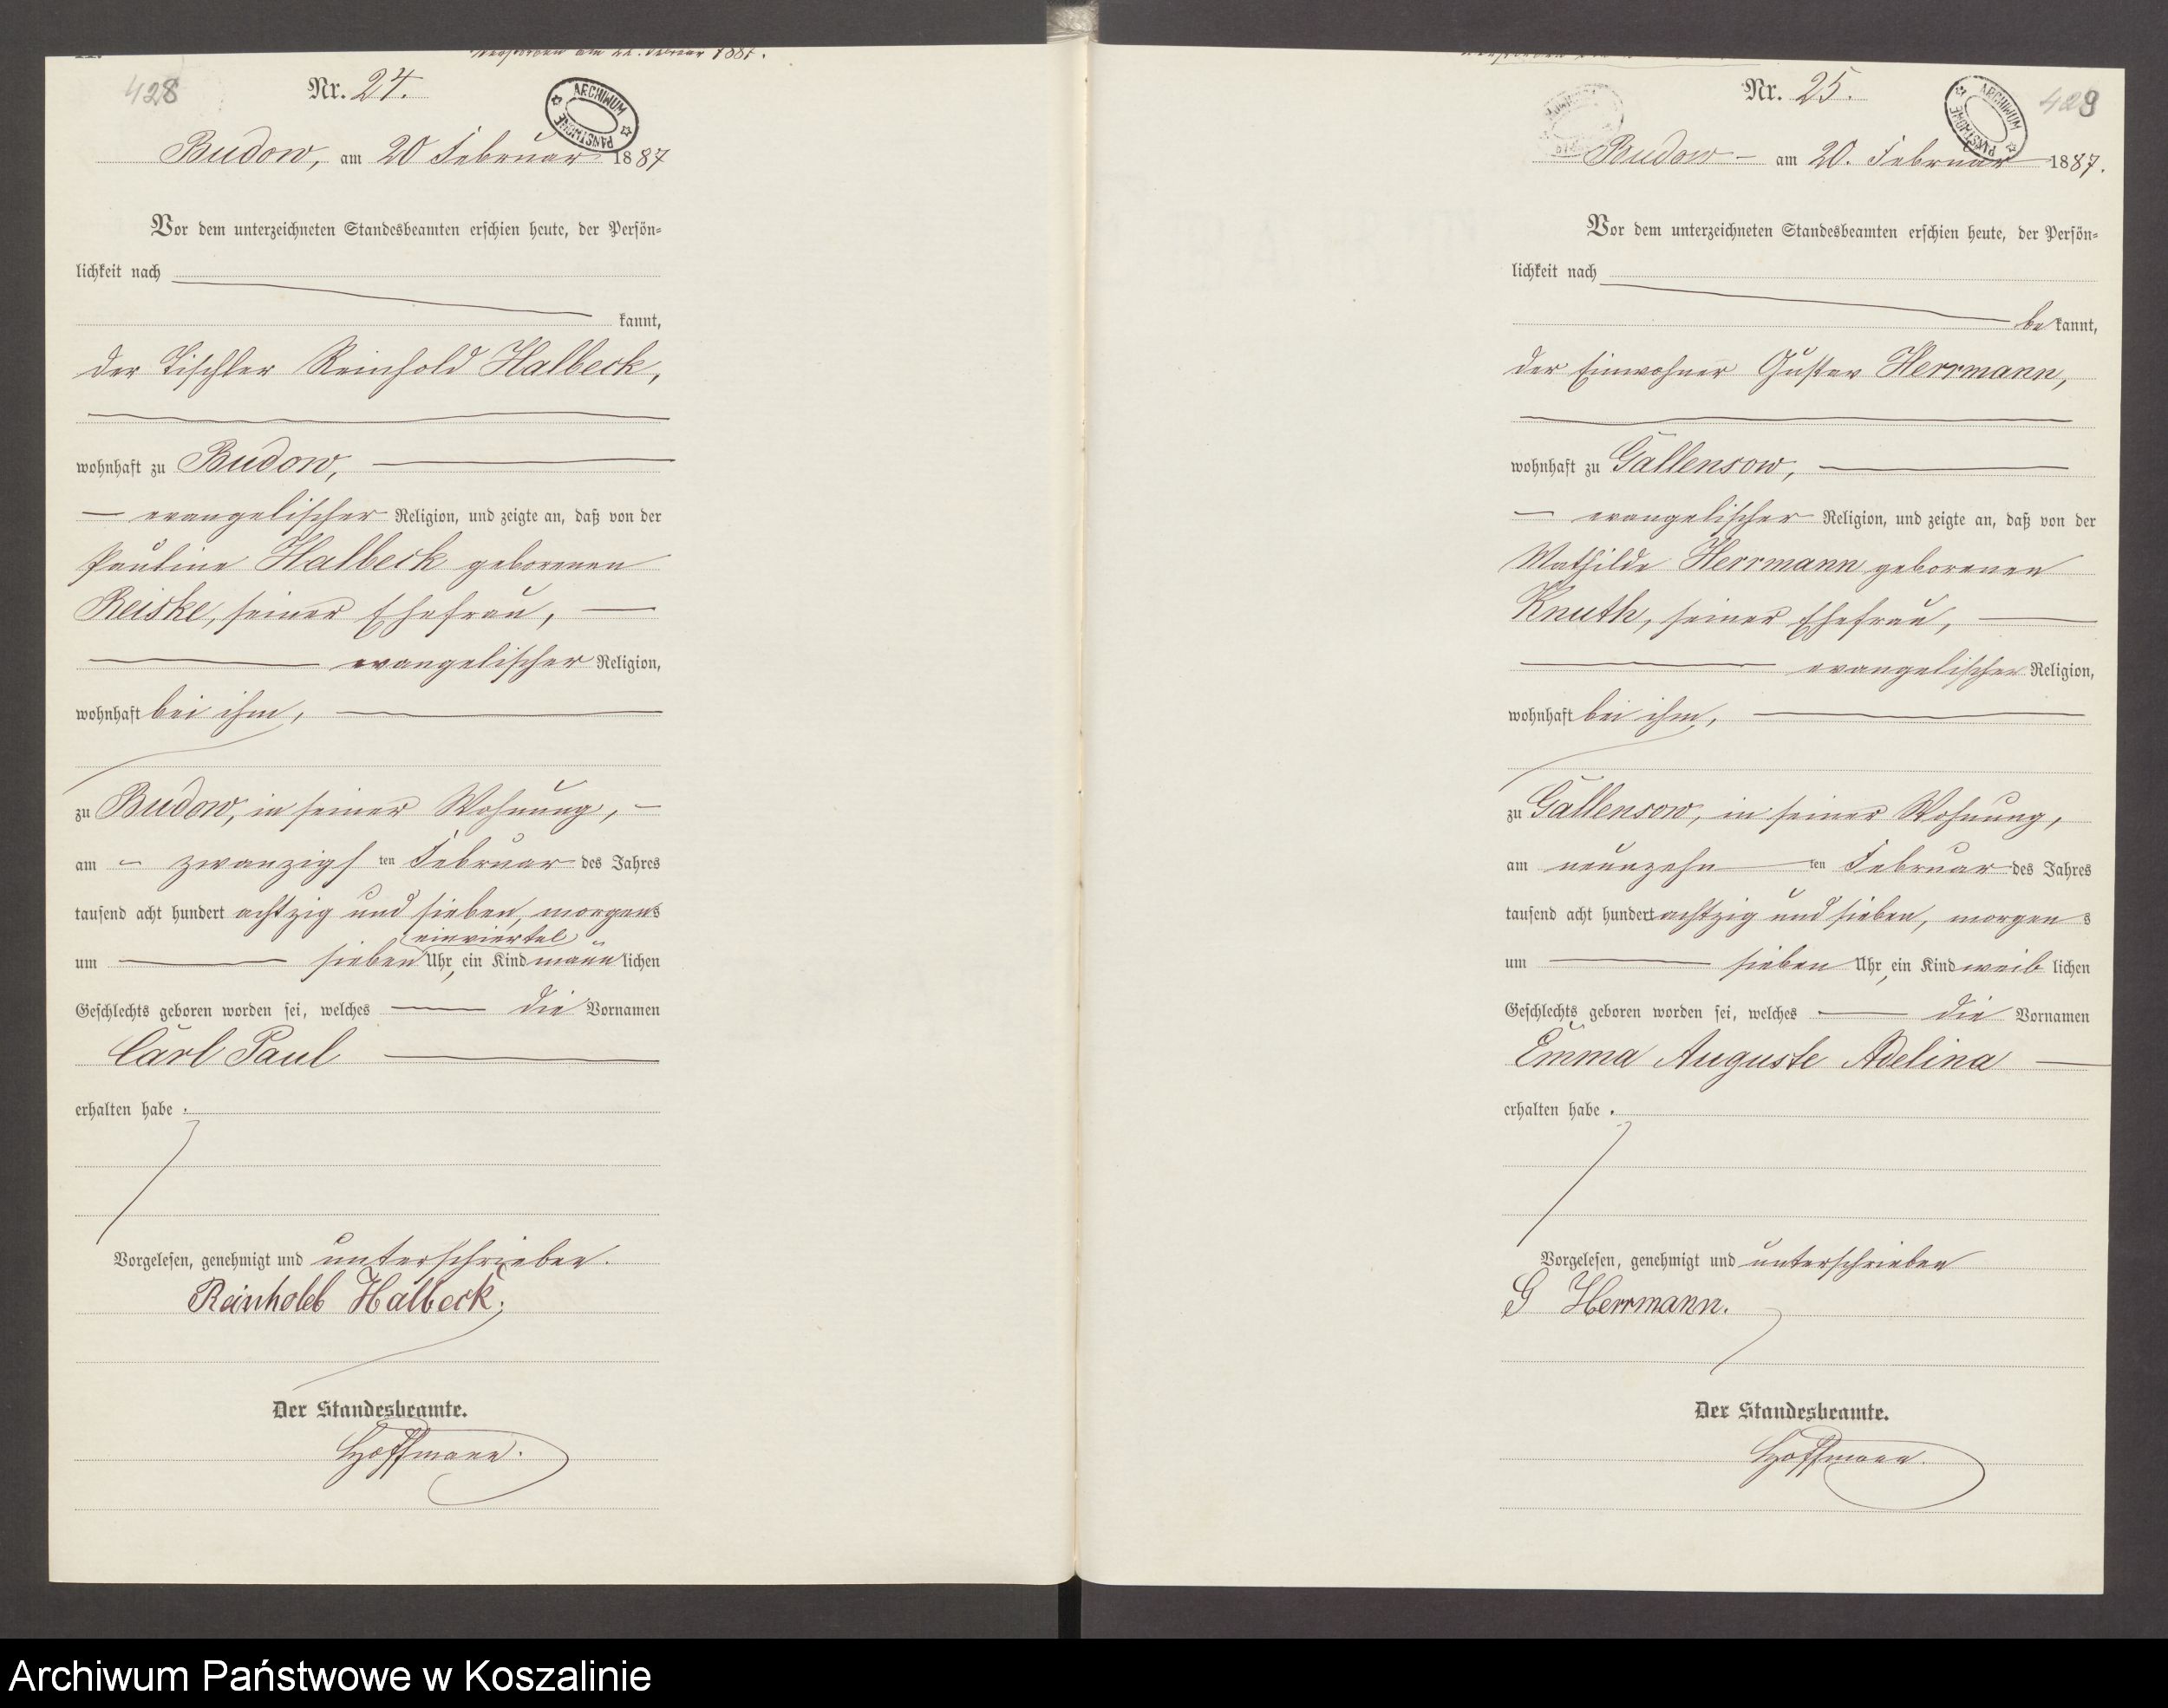 428
Nr. 24.
ARCHIWUM PAŃSTWOWE
Budow, am 20 Februar 1887
Vor dem unterzeichneten Standesbeamten erschien heute, der Persön-
lichkeit nach
kannt,
der Tischler Reinhold Halbeck,
wohnhaft zu Budow,
evangelischer Religion, und zeigte an, daß von der
Pauline Halbeck geborenen
Reiske, seiner Ehefrau,
evangelischer Religion,
wohnhaft bei ihm,
zu Budow, in seiner Wohnung,
am zwanzigsten Februar des Jahres
tausend acht hundert achtzig und sieben, morgens
einviertel
um sieben Uhr, ein Kind männlichen
Geschlechts geboren worden sei, welches die Vornamen
Carl Paul
erhalten habe.
Vorgelesen, genehmigt und unterschrieben.
Reinhold Halbeck.
Der Standesbeamte.
Hoffmann.
Nr. 25.
ARCHIWUM PAŃSTWOWE
429
Budow am 20. Februar 1887.
Vor dem unterzeichneten Standesbeamten erschien heute, der Persön-
lichkeit nach
bekannt,
der Einwohner Gustav Herrmann,
wohnhaft zu Gallensow,
evangelischer Religion, und zeigte an, daß von der
Mathilde Herrmann geborenen
Knuth, seiner Ehefrau,
evangelischer Religion,
wohnhaft bei ihm,
zu Gallensow, in seiner Wohnung,
am neunzehnten Februar des Jahres
tausend acht hundert achtzig und sieben, morgens
um sieben Uhr, ein Kind weiblichen
Geschlechts geboren worden sei, welches die Vornamen
Emma Auguste Adelina
erhalten habe.
Vorgelesen, genehmigt und unterschrieben
G Herrmann.
Der Standesbeamte.
Hoffmann.
Archiwum Państwowe w Koszalinie